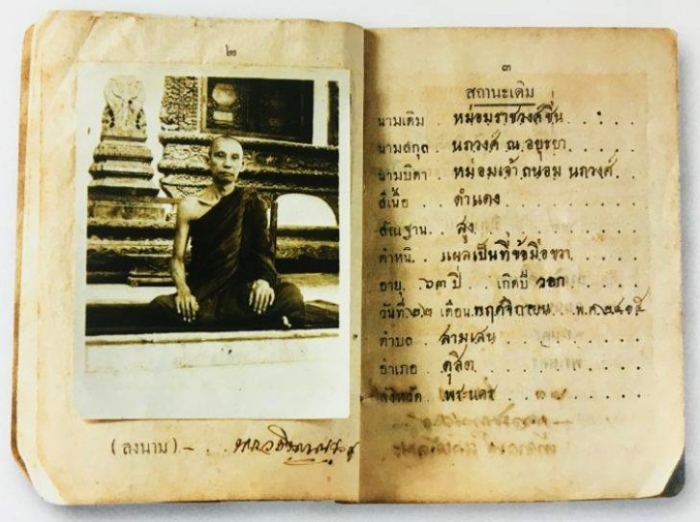 ๒
(ลงนาม)
๓
สถานะเดิม
นามเดิม หม่อมราชวงศ์ชื่น
นามสกุล นภวงศ์ ณ อยุธยา
นามบิดา หม่อมเจ้า ถนอม นภวงศ์
สีเนื้อ ดำแดง
สัณฐาน สูง
ตำหนิ แผลเป็นที่ข้อมือขวา
อายุ ๖๓ ปี เกิดปี วอก
วันที่ ๒๒ เดือน พฤศจิกายน พ.ศ. ๒๔๑๕
ตำบล สามเสน
อำเภอ ดุสิต
จังหวัด พระนคร